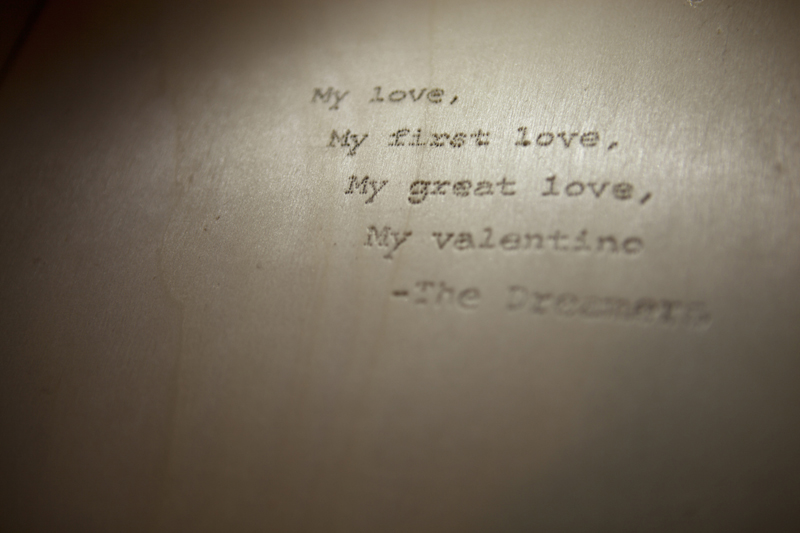 My love,
My first love,
My great love,
My valentine
-The Dreamers